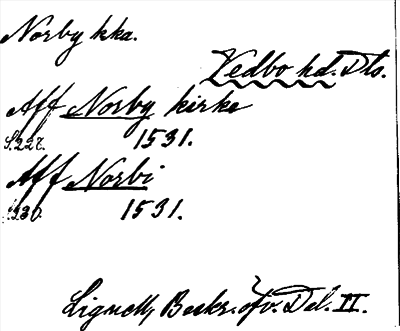 Norby kka.
Vedbo hd. Dls.
Aff Norby kirke
S.227. 1531.
Aff Norbi
S.230. 1531.
Lignell, Beskr. öfv. Dal. II.